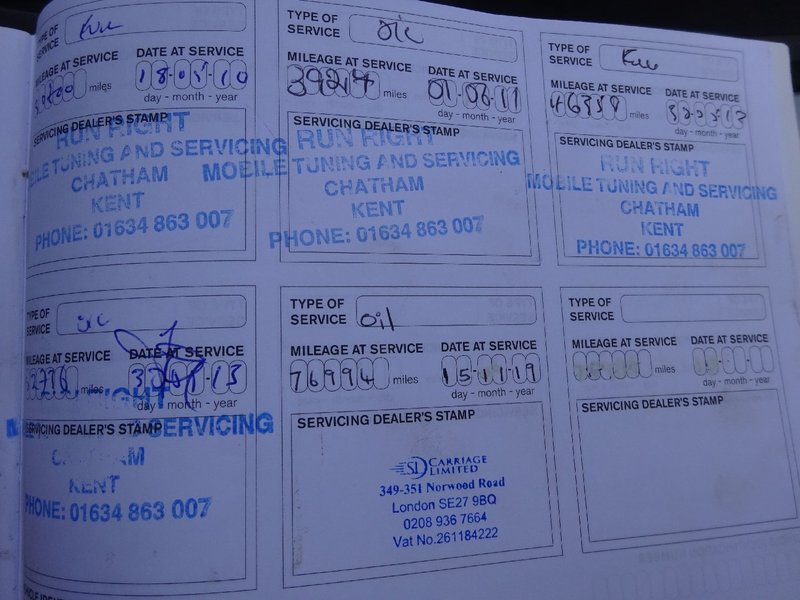 TYPE OF
SERVICE Full
MILEAGE AT SERVICE DATE AT SERVICE
miles 18-05-10
day - month - year
SERVICING DEALER'S STAMP
RUN RIGHT
MOBILE TUNING AND SERVICING
CHATHAM
KENT
PHONE: 01634 863 007
TYPE OF
SERVICE oil
MILEAGE AT SERVICE DATE AT SERVICE
miles 01-06-11
day - month - year
SERVICING DEALER'S STAMP
RUN RIGHT
MOBILE TUNING AND SERVICING
CHATHAM
KENT
PHONE: 01634 863 007
TYPE OF
SERVICE Full
MILEAGE AT SERVICE DATE AT SERVICE
46359 miles
day - month - year
SERVICING DEALER'S STAMP
RUN RIGHT
MOBILE TUNING AND SERVICING
CHATHAM
KENT
PHONE: 01634 863 007
TYPE OF
SERVICE oil
MILEAGE AT SERVICE DATE AT SERVICE
miles
day - month - year
SERVICING DEALER'S STAMP
SERVICING
CHATHAM
KENT
PHONE: 01634 863 007
TYPE OF
SERVICE oil
MILEAGE AT SERVICE DATE AT SERVICE
76994 miles 15-11-19
day - month - year
SERVICING DEALER'S STAMP
SD CARRIAGE
LIMITED
349-351 Norwood Road
London SE27 9BQ
0208 936 7664
Vat No.261184222
TYPE OF
SERVICE
MILEAGE AT SERVICE DATE AT SERVICE
miles
day - month - year
SERVICING DEALER'S STAMP